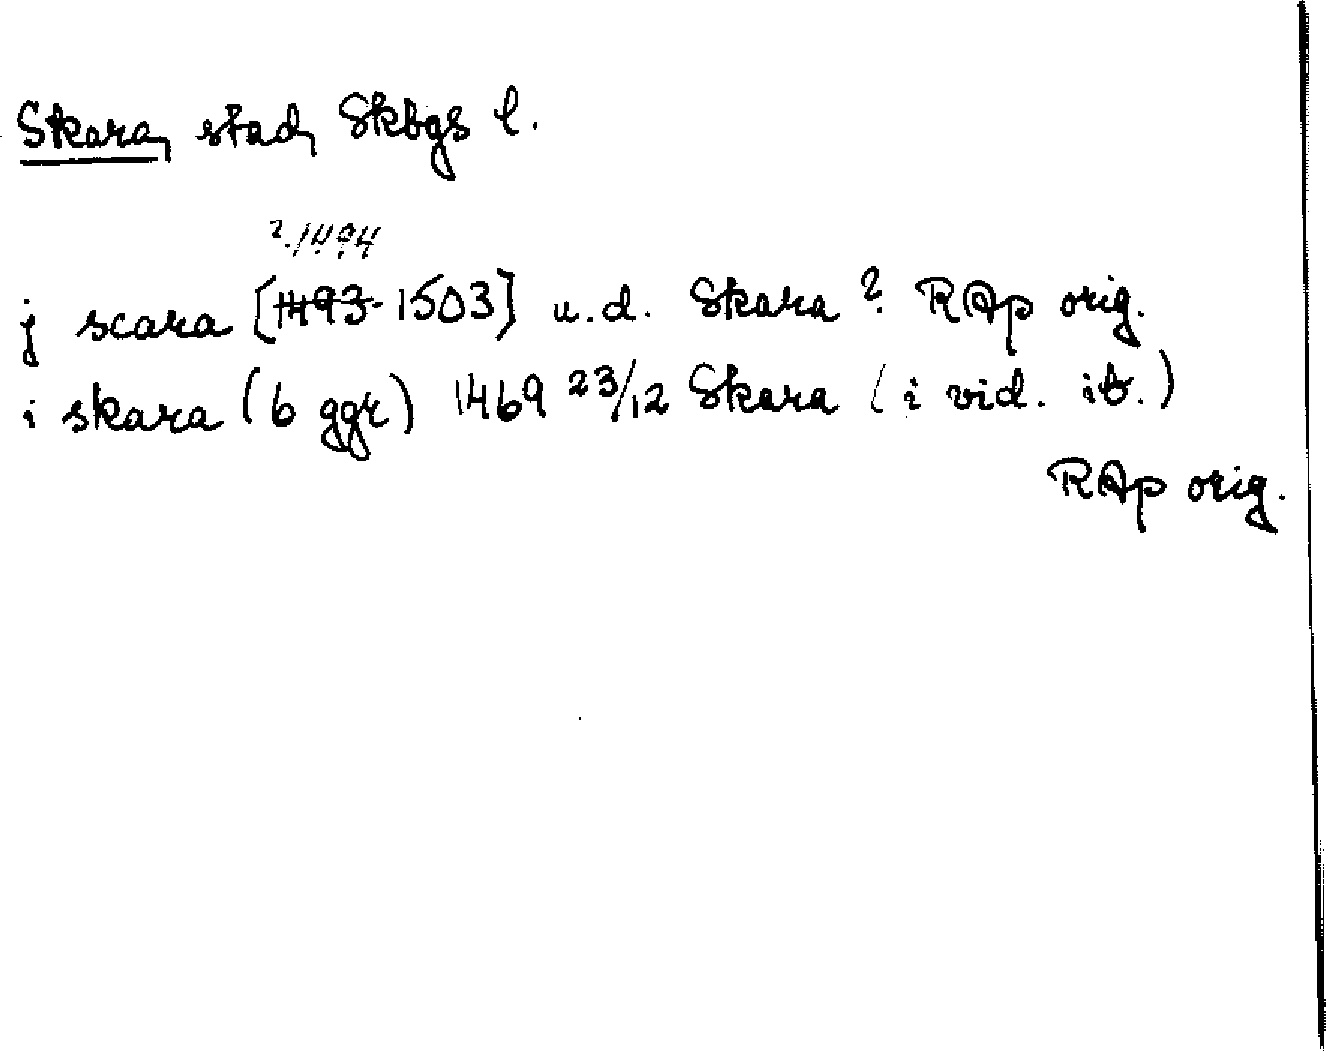 Skara, stad, Skbgs l.
?.1494
j scara [1493-1503] u.d. Skara? RAp orig.
i skara (6 ggr) 1469 23/12 Skara (i vid. ib.)
RAp orig.